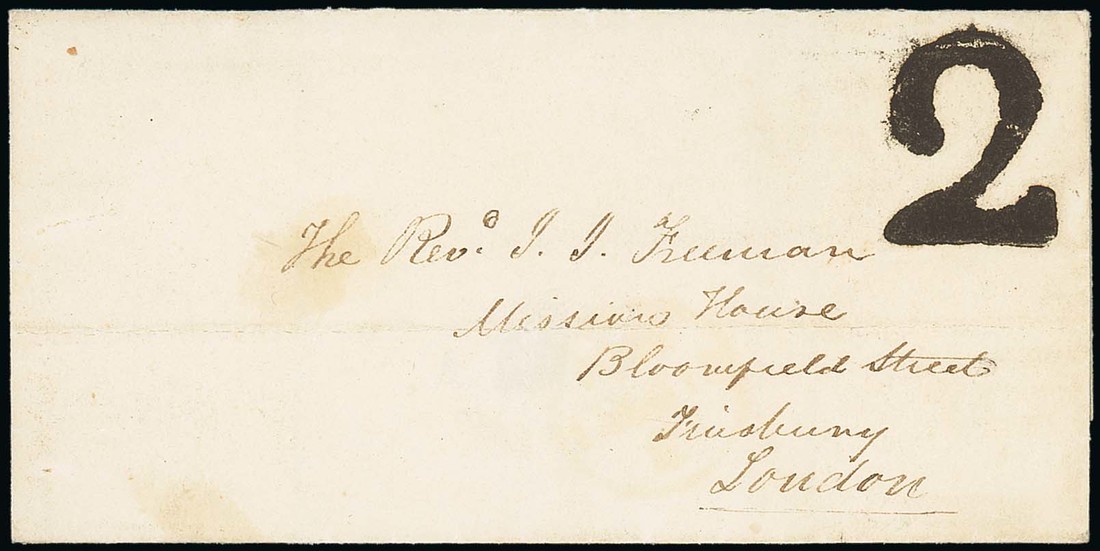 2
The Revd. J. J. Freeman
Mission House
Bloomfield Street
Finsbury
London